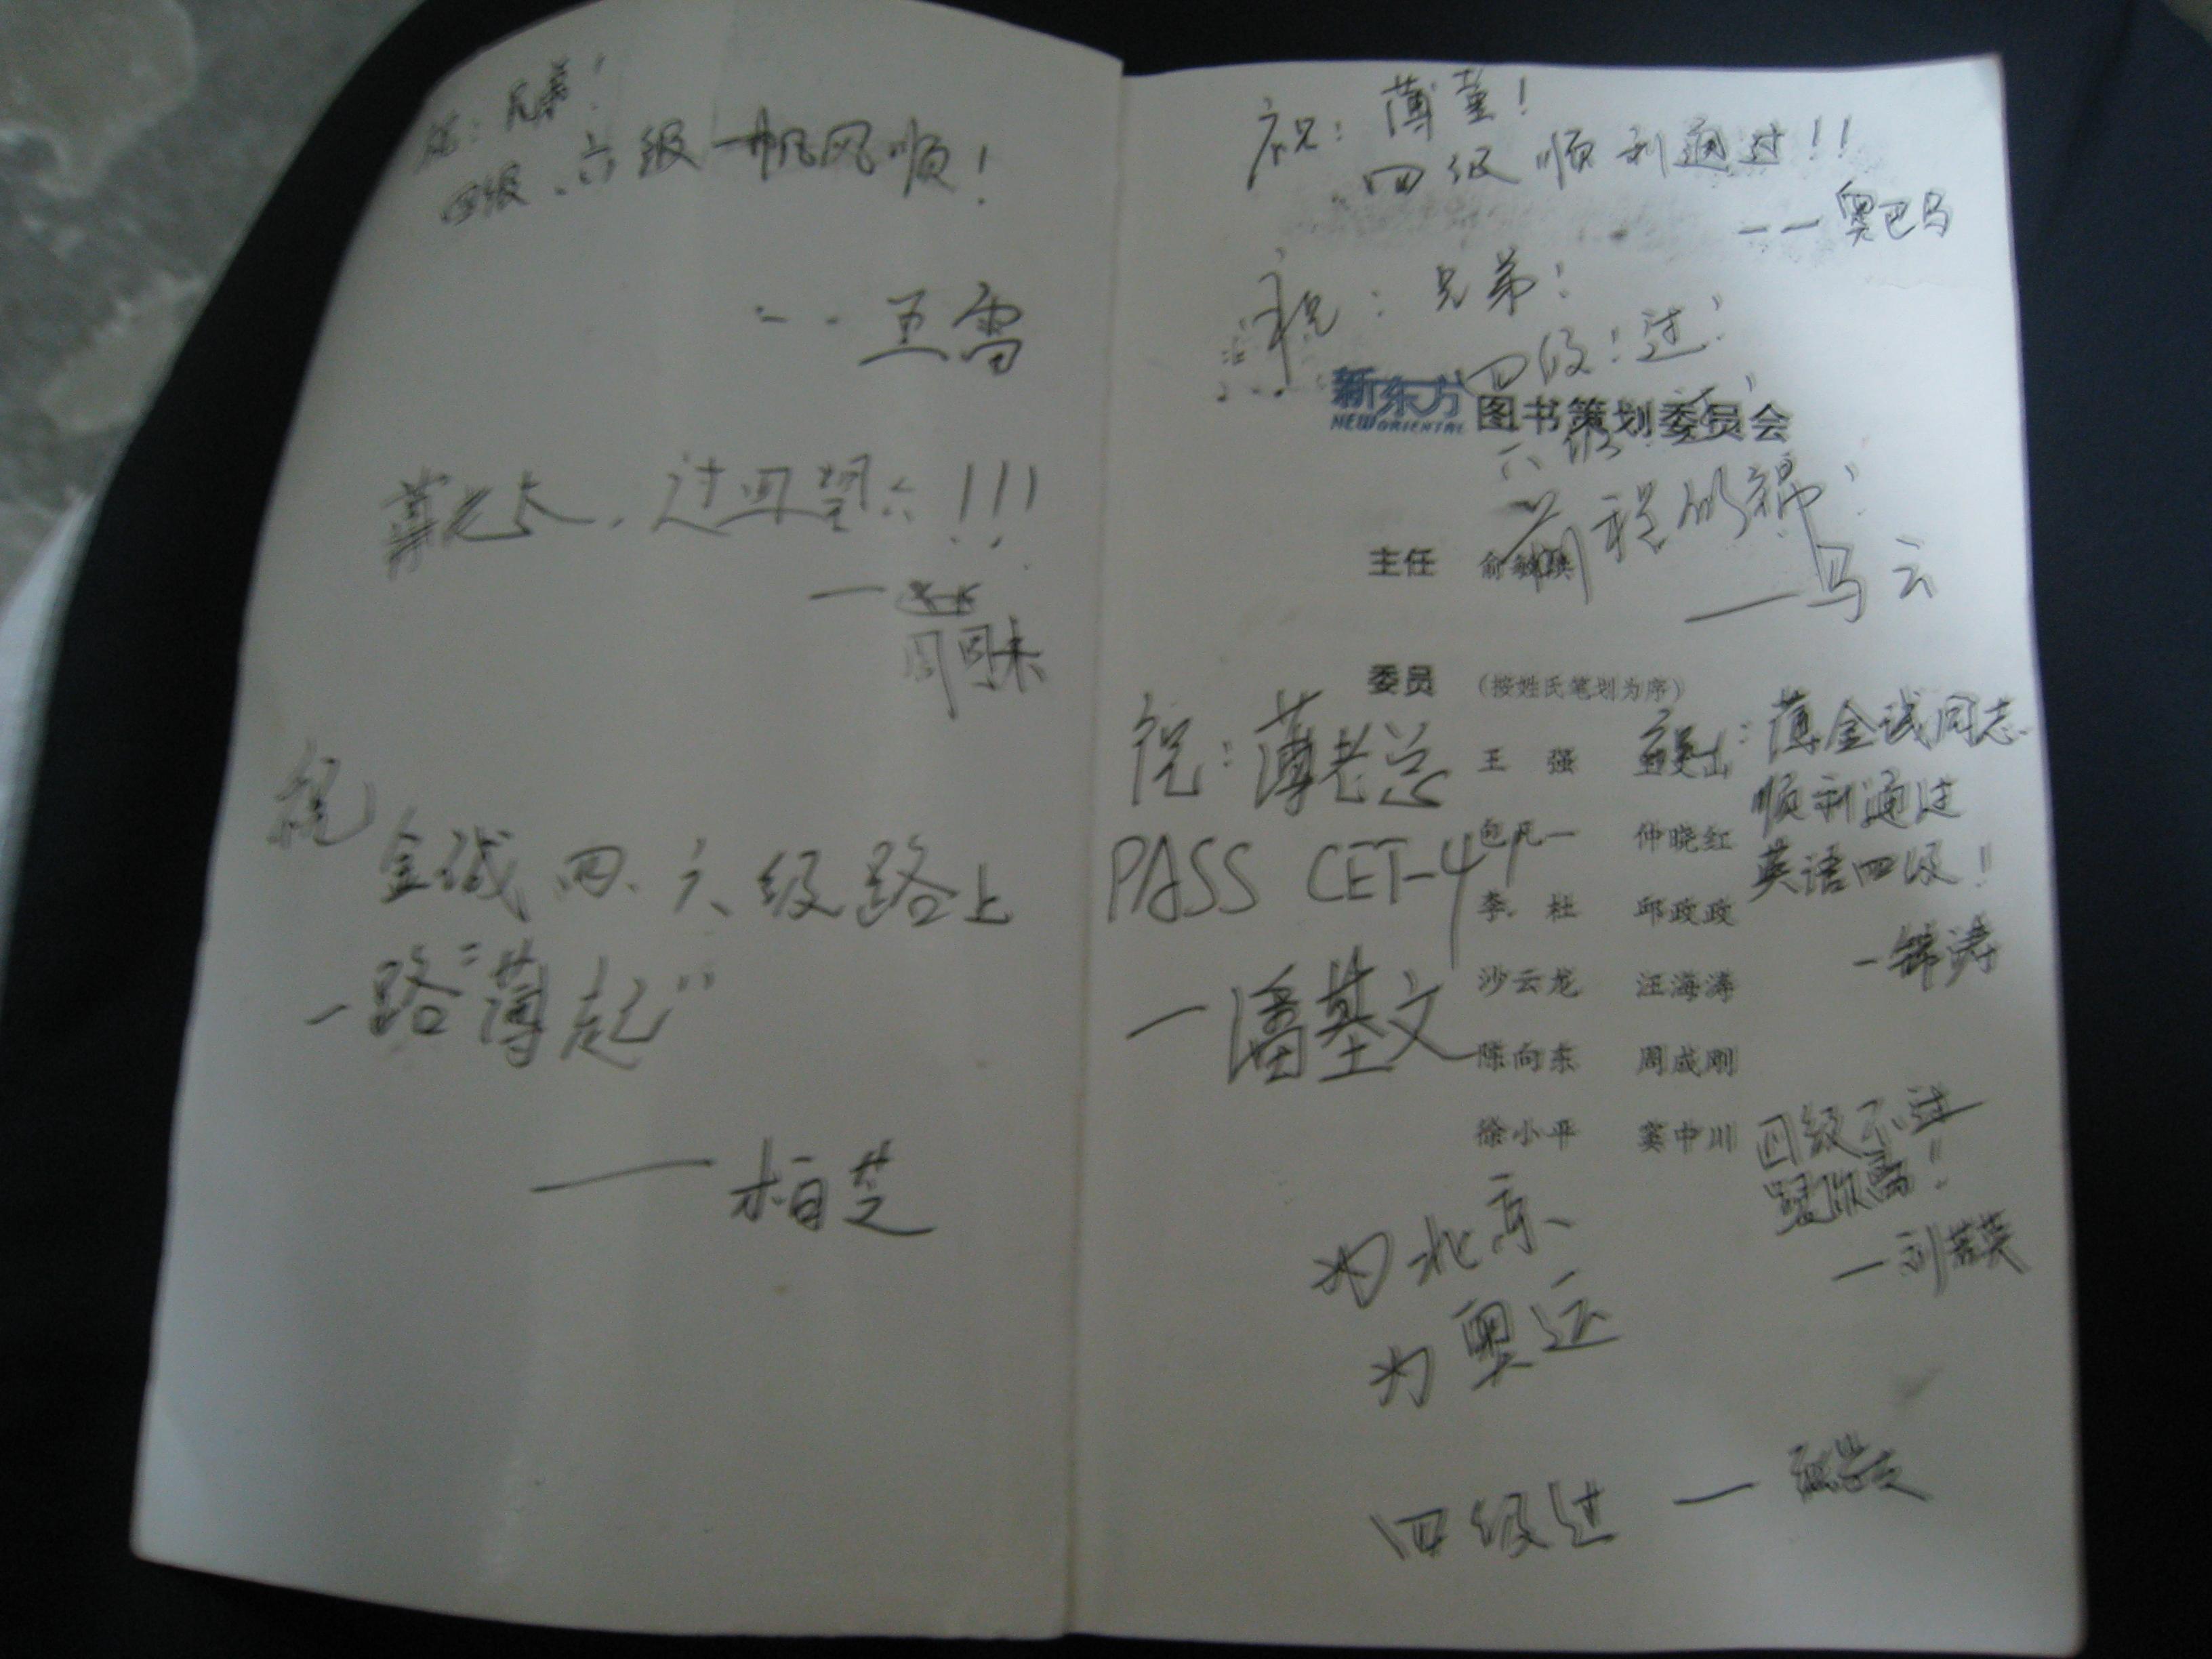 祝：兄弟！
四级、六级一帆风顺！
--王雪
薄老大，过四望六！！！
—
周
祝
金诚四、六级路上
一路“薄起”
——柏芝
祝：薄董！
四级顺利通过！！
--奥巴马
祝：兄弟！
四级！过！
新东方 图书策划委员会
NEW ORIENTAL
六级！过！
前程似锦！
—马云
主任 俞敏洪
委员 （按姓氏笔划为序）
祝：薄老总
PASS CET-4
—潘基文
王 强
包凡一 仲晓红
李 杜 邱政政
沙云龙 汪海涛
陈向东 周成刚
徐小平 窦中川
祝：薄金诚同志
顺利通过
英语四级！
—锦涛
四级不过
—刘
为北京
为奥运
四级过 —